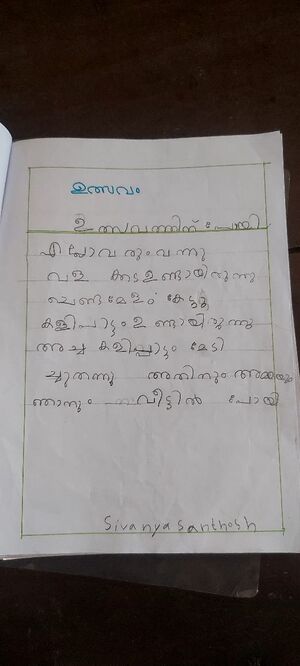 ഉത്സവം
ഉത്സവത്തിന് പോയി
എല്ലാവരും വന്നു
വള കടഉണ്ടായിരുന്നു
ചെണ്ടമേളം കേട്ടു
കളിപാട്ടം ഉണ്ടായിരുന്നു
അച്ച കളിപ്പാട്ടം മേടി
ച്ചുതന്നു അതിനും അമ്മയും
ഞാനും വീട്ടിൽ പോയി
Sivanya Santhosh